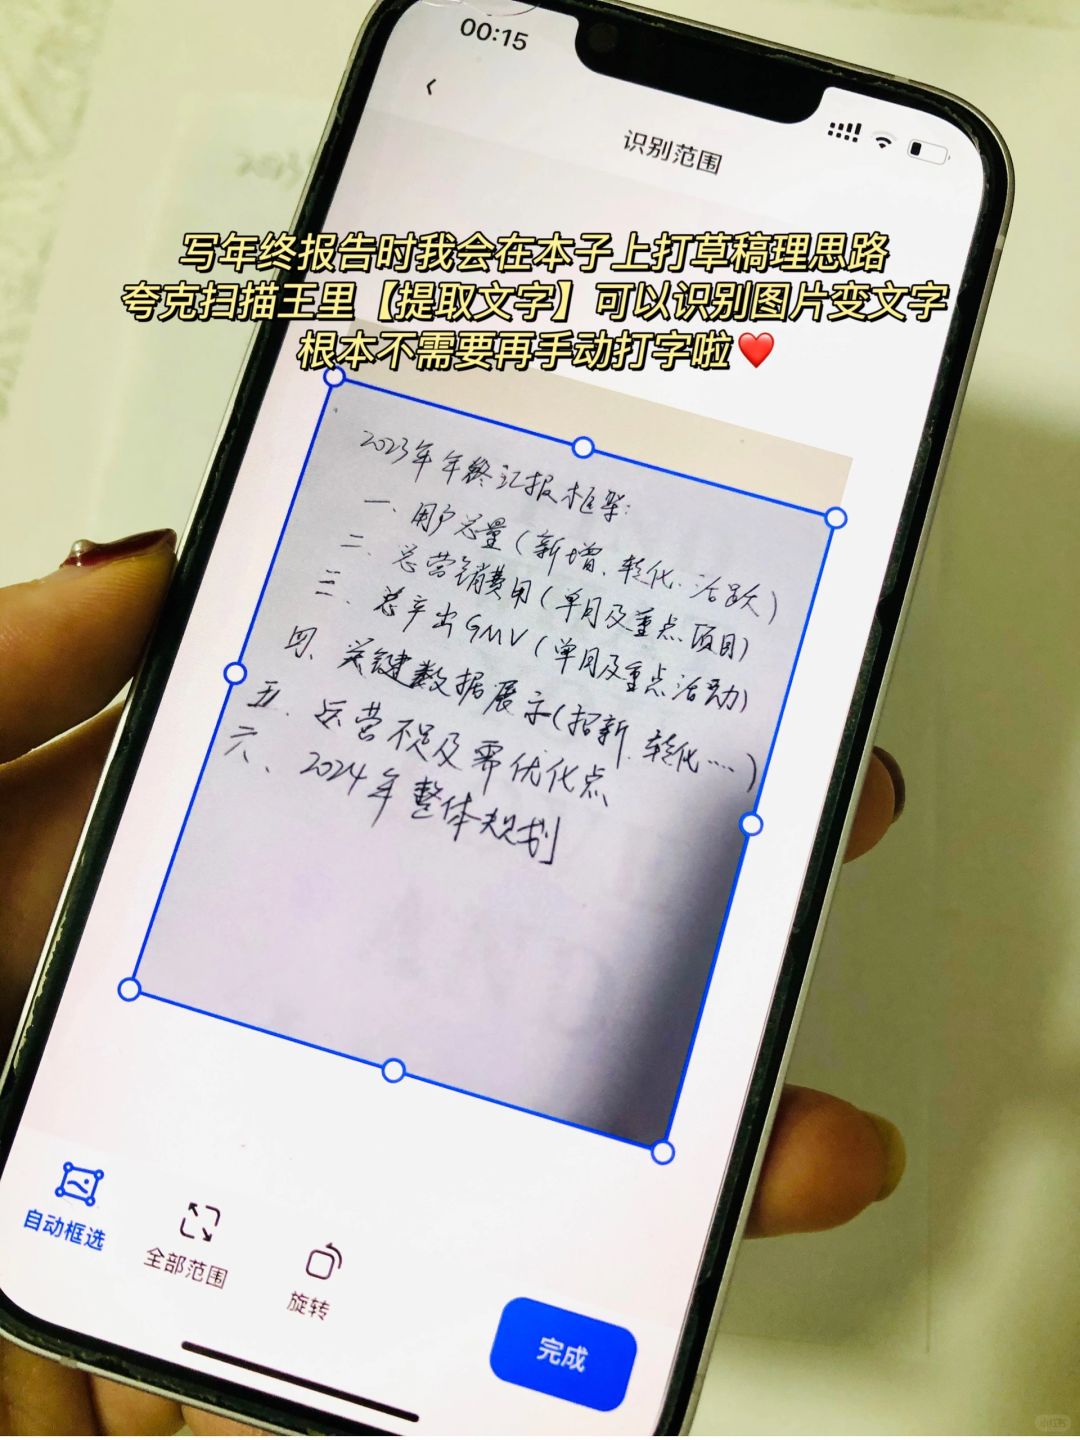 00:15
识别范围
写年终报告时我会在本子上打草稿理思路
夸克扫描王里【提取文字】可以识别图片变文字
根本不需要再手动打字啦❤️
2023年年终汇报框架:
一、用户总量(新增、转化、活跃)
二、总营销费用(单月及重点项目)
三、总产出GMV(单月及重点活动)
四、关键数据展示(招新、转化....)
五、运营不足及需优化点
六、2024年整体规划
自动框选
全部范围
旋转
完成
小红书